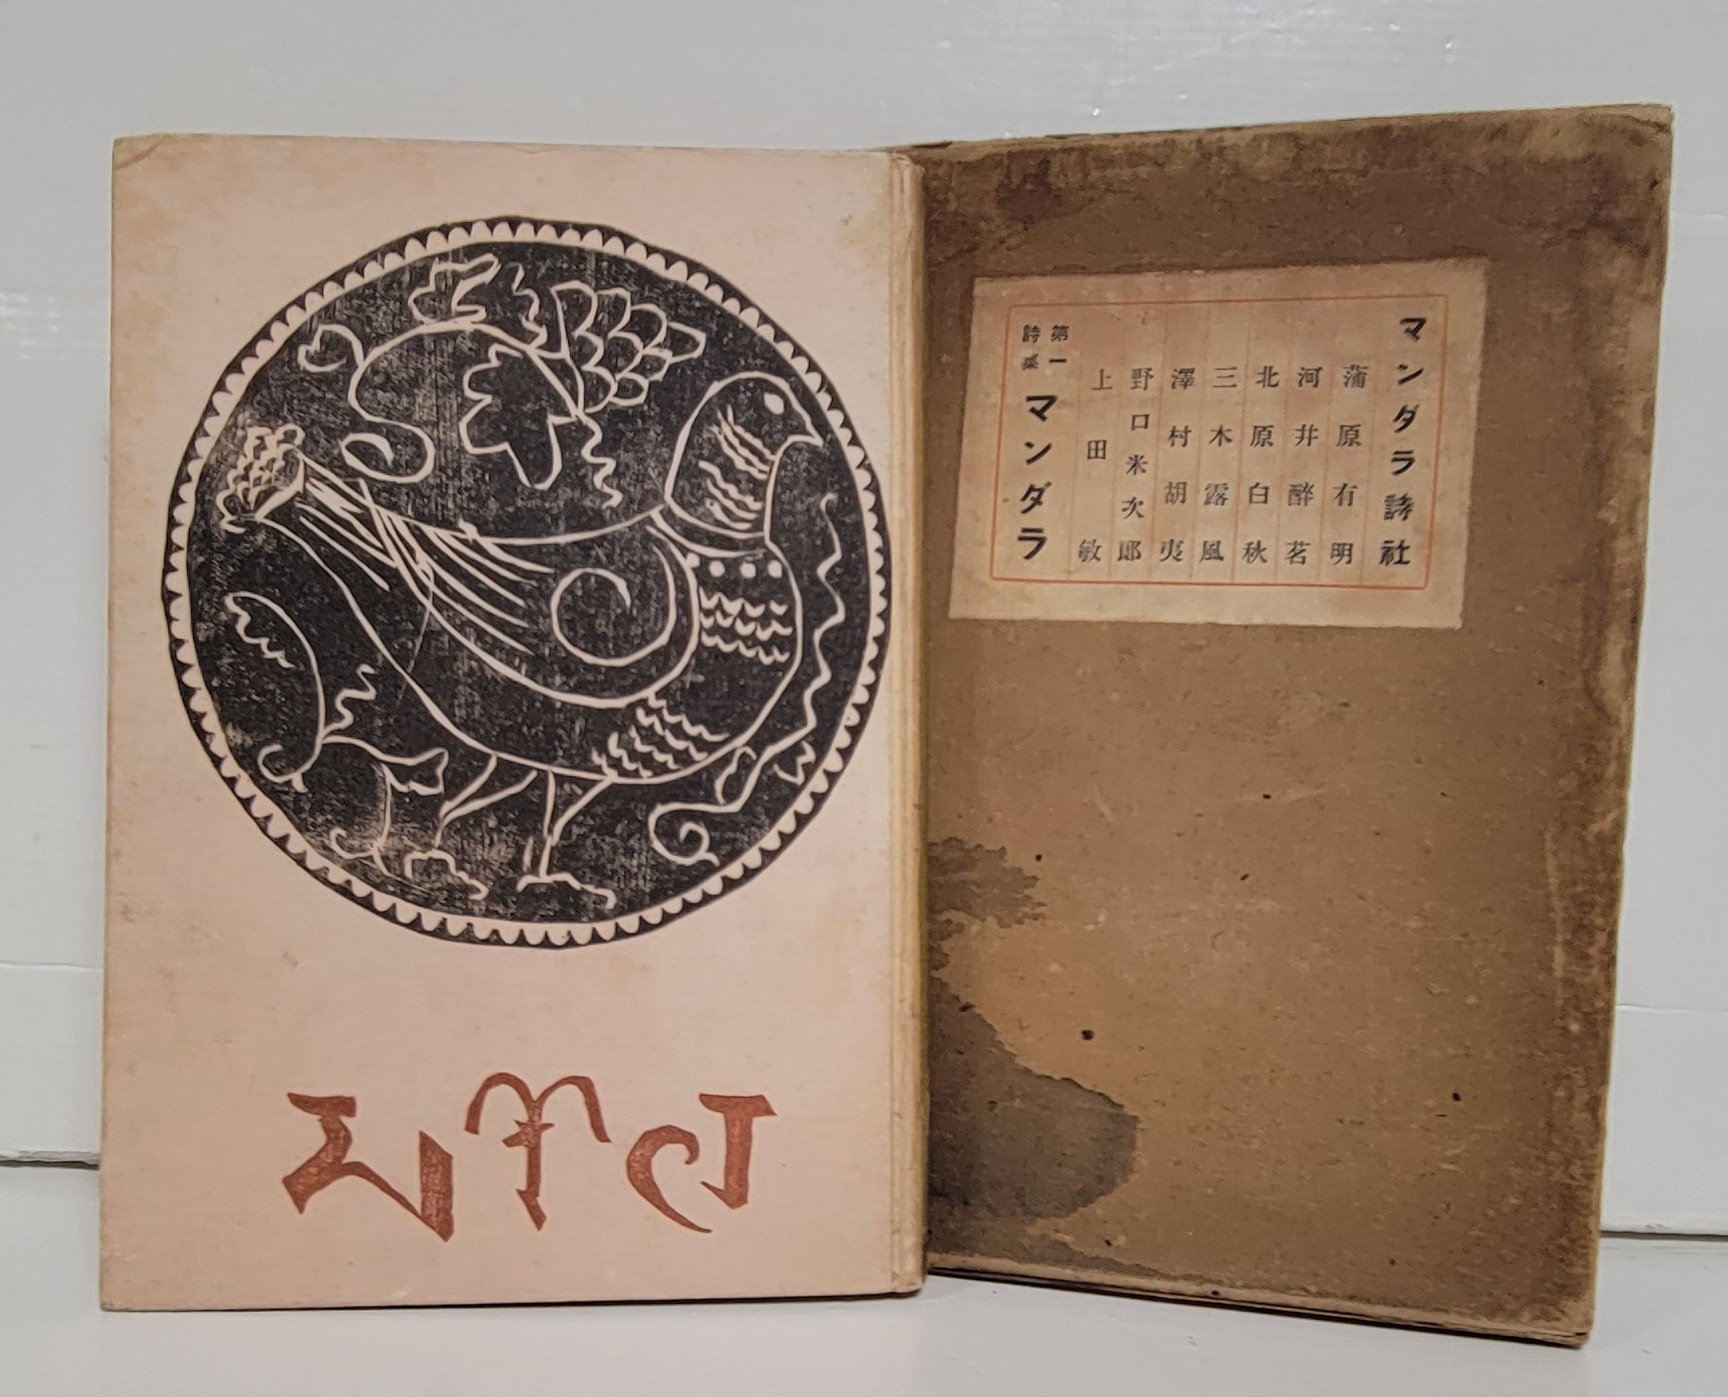 マンダラ詩社
蒲原有明
河井醉茗
北原白秋
三木露風
澤村胡夷
野口米次郎
上田敏
第一
詩集
マンダラ